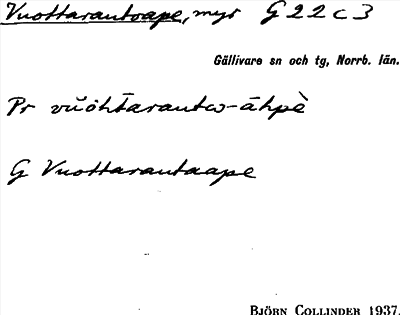 Vuottarautoape, myr G 22 c 3
Gällivare sn och tg, Norrb. län.
Pr vŭŏh̄tarautω-āhpè
G Vuottarautaape
BJÖRN COLLINDER 1937.